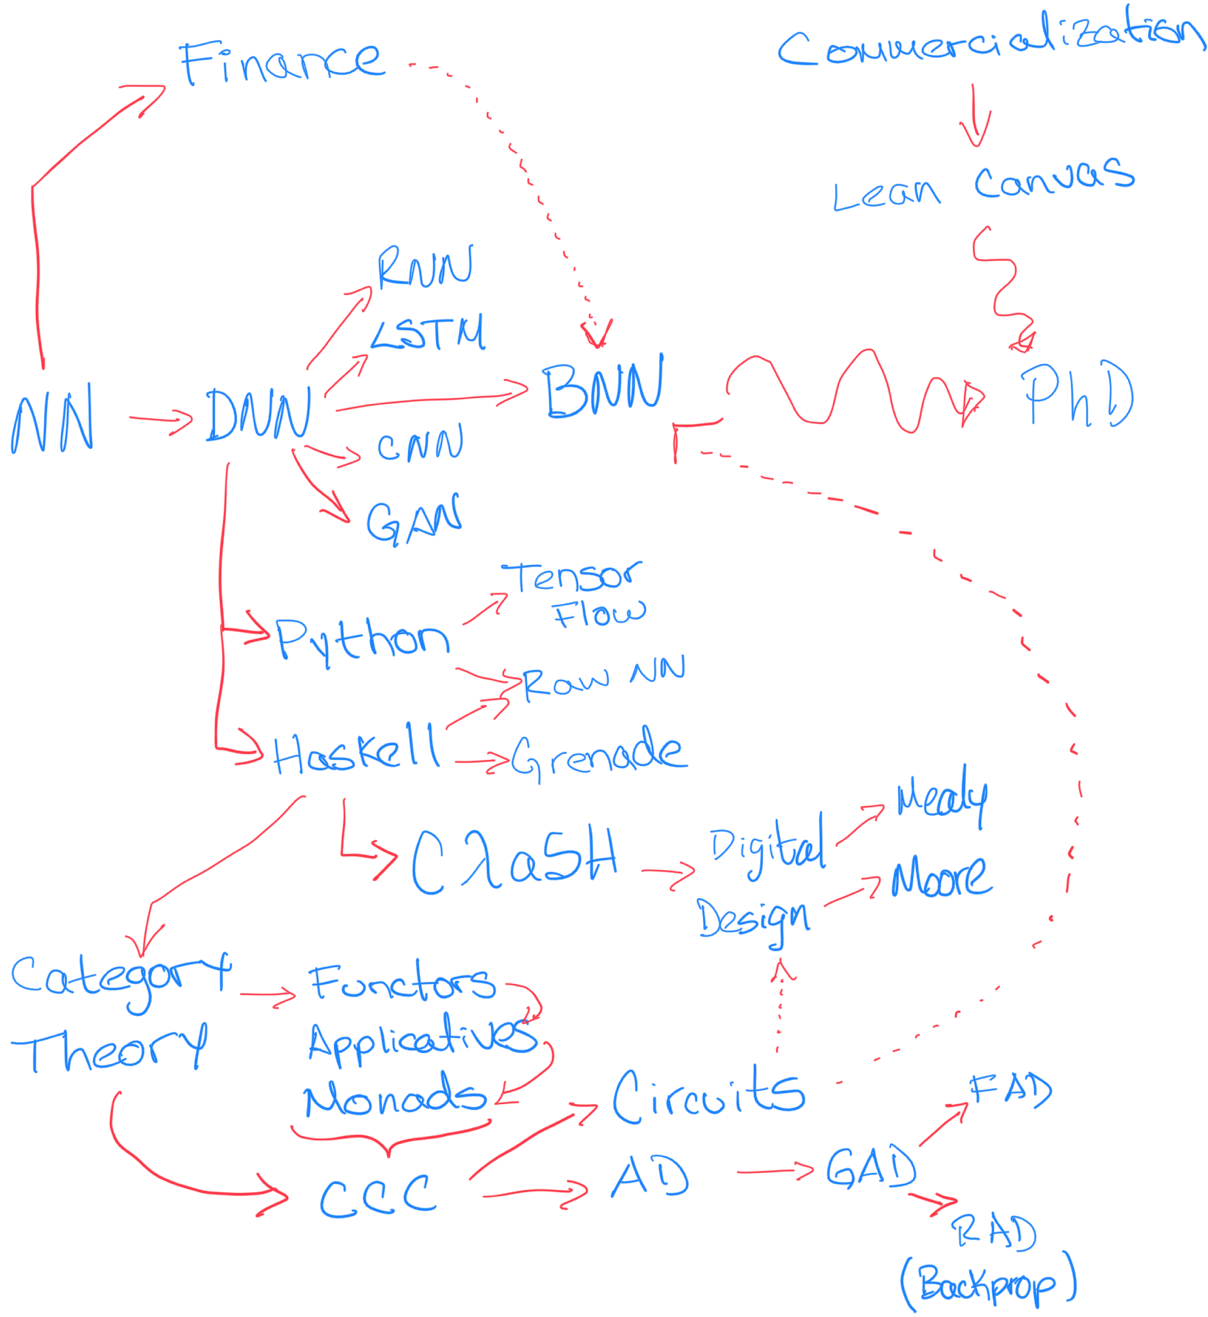 Finance
Commercialization
Lean Canvas
RNN
LSTM
NN
DNN
BNN
PhD
CNN
GAN
Tensor
Flow
Python
Raw NN
Haskell
Grenade
CλaSH
Digital
Design
Mealy
Moore
Category
Theory
Functors
Applicatives
Monads
CCC
Circuits
AD
GAD
FAD
RAD
(Backprop)